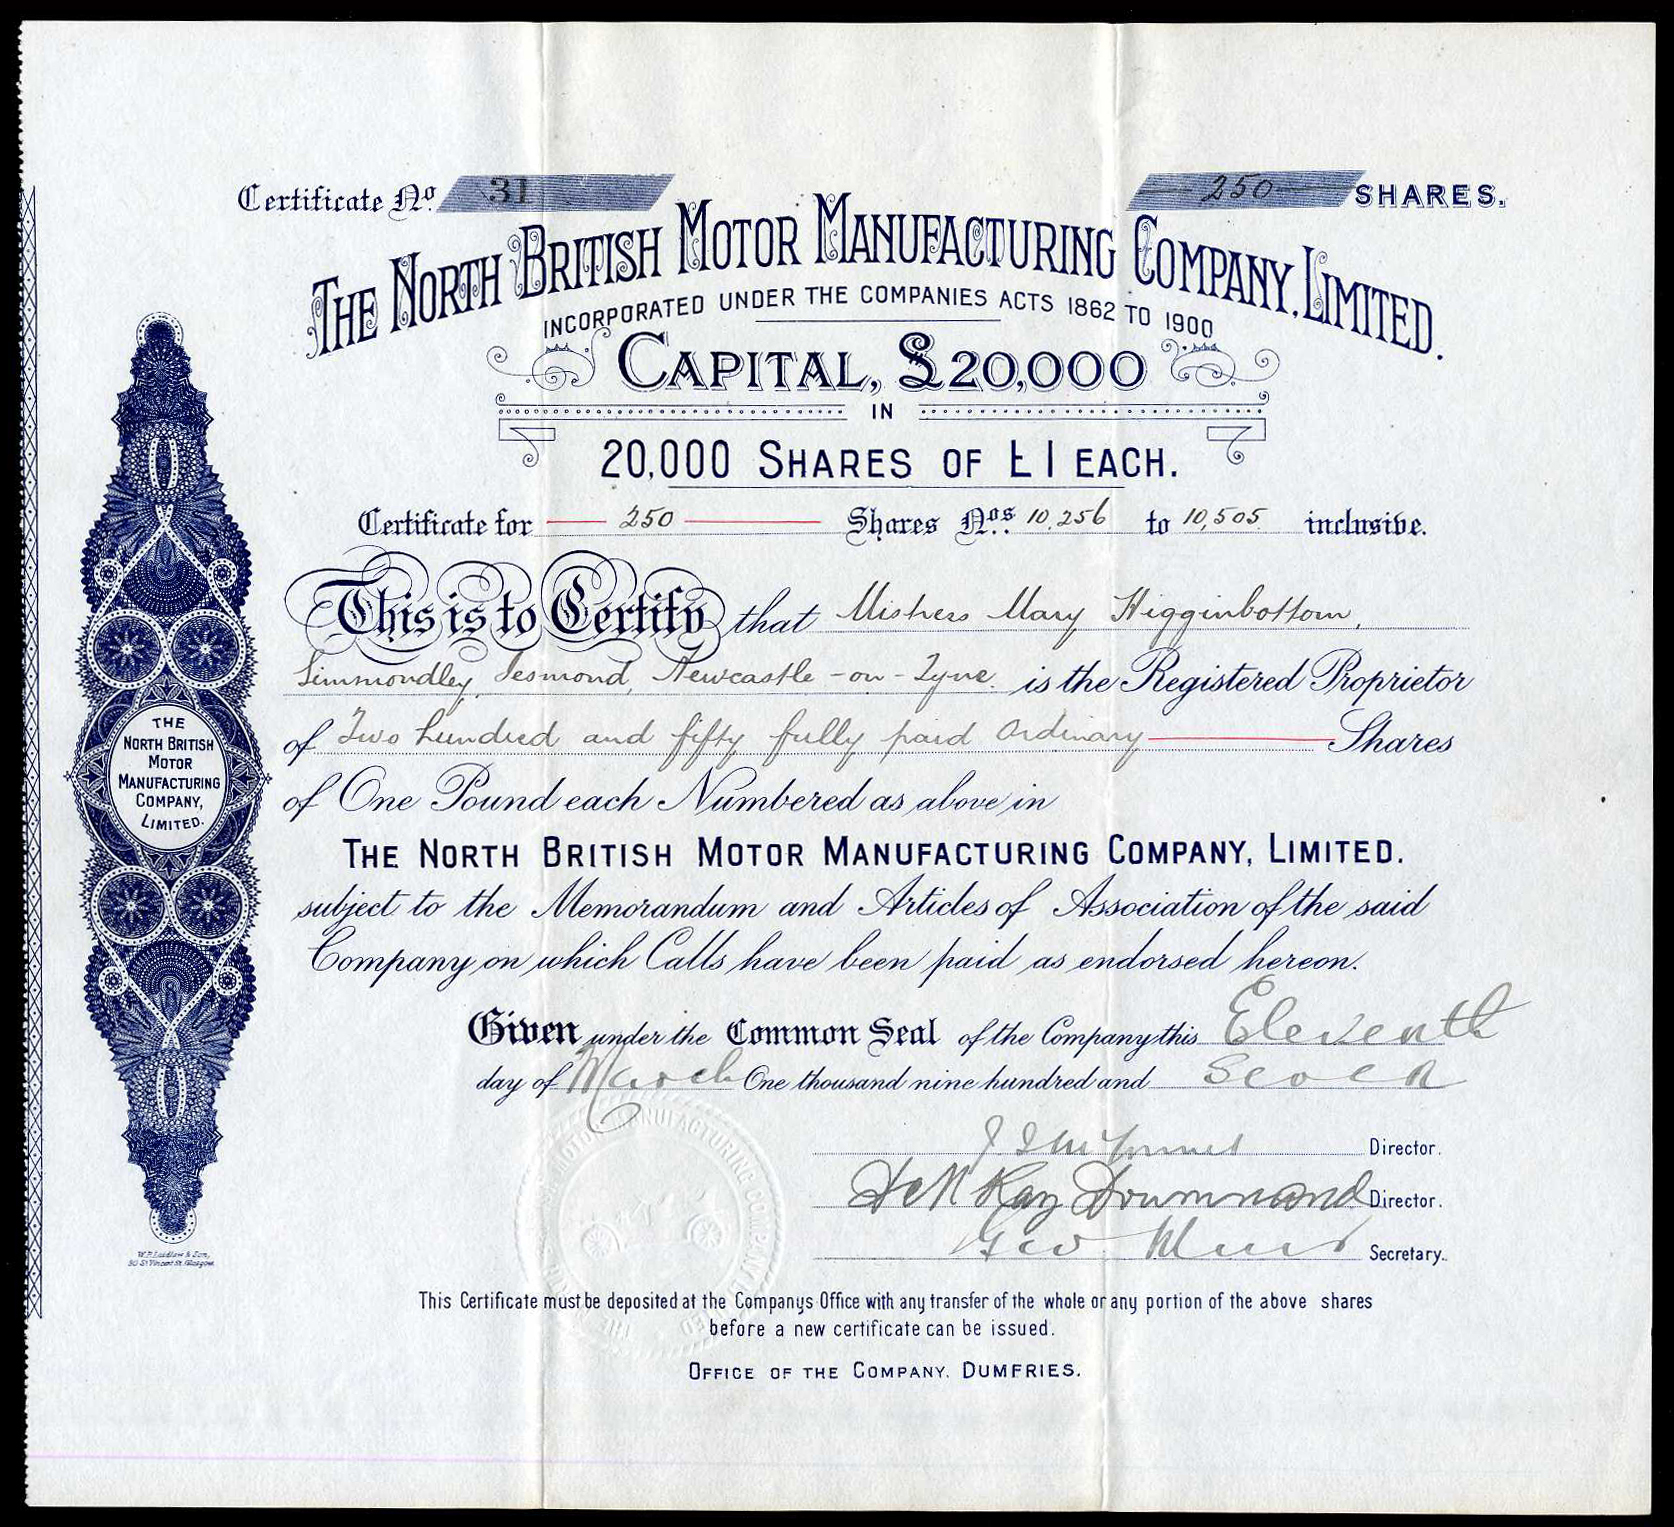 Certificate No. 31
250 SHARES.
THE NORTH BRITISH MOTOR MANUFACTURING COMPANY, LIMITED.
INCORPORATED UNDER THE COMPANIES ACTS 1862 TO 1900
CAPITAL, £20,000
IN
20,000 SHARES OF £1 EACH.
Certificate for 250 Shares Nos. 10,256 to 10,505 inclusive.
This is to Certify that Mistress Mary Higginbottom,
Simmondley, Jesmond, Newcastle-on-Tyne. is the Registered Proprietor
of Two hundred and fifty fully paid Ordinary Shares
of One Pound each Numbered as above in
THE NORTH BRITISH MOTOR MANUFACTURING COMPANY, LIMITED.
subject to the Memorandum and Articles of Association of the said
Company on which Calls have been paid as endorsed hereon.
Given under the Common Seal of the Company this Eleventh
day of March One thousand nine hundred and Seven
Director.
Drummond Director.
Geo. Muir Secretary.
This Certificate must be deposited at the Companys Office with any transfer of the whole or any portion of the above shares
before a new certificate can be issued.
OFFICE OF THE COMPANY. DUMFRIES.
THE
NORTH BRITISH
MOTOR
MANUFACTURING
COMPANY,
LIMITED.
W.P. Laidlaw & Son,
St Vincent St. Glasgow.
MOTOR MANUFACTURING COMPANY